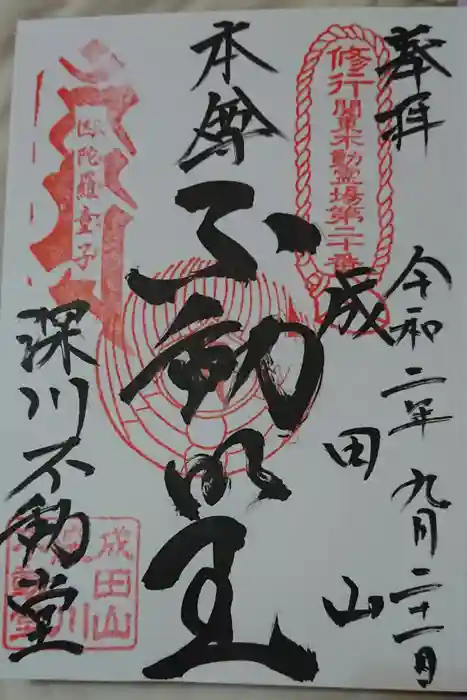 奉拝
令和二年九月二十一日
修行 関東不動霊場第二十番
成田山
本尊
不動明王
陀羅童子
深川不動堂
成田山
深川
不動堂